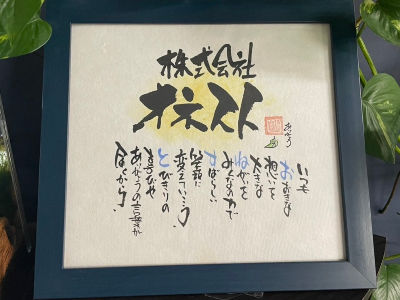 株式会社
オネスト
いつも
おおきな
想いを
大きな
ねがいを
みんなの力で
すばらしい
笑顔に
変えていこう
とびきりの
ありがとうの言葉が